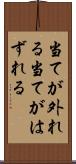 当てが外れ
る当てがは
ずれる